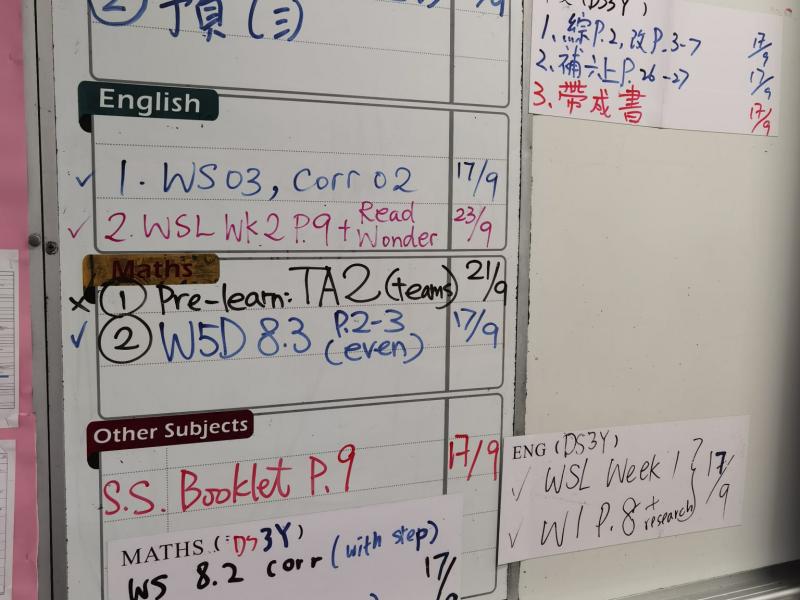 ② 預(三)
English
✓ 1. WS 03, Corr 02 17/9
✓ 2. WSL Wk 2 P.9 + Read Wonder 23/9
Maths
× ① Pre-learn: TA2 (teams) 21/9
✓ ② W5D 8.3 P.2-3 (even) 17/9
Other Subjects
S.S. Booklet P.9 17/9
MATHS (DS3Y)
WS 8.2 corr (with step) 17/9
(DS3Y)
1. 綜P.2, 改P.3-7 17/9
2. 補六上P.26-27 17/9
3. 帶成書 17/9
ENG (DS3Y)
✓ WSL Week 1
✓ W1 P.8 + research } 17/9